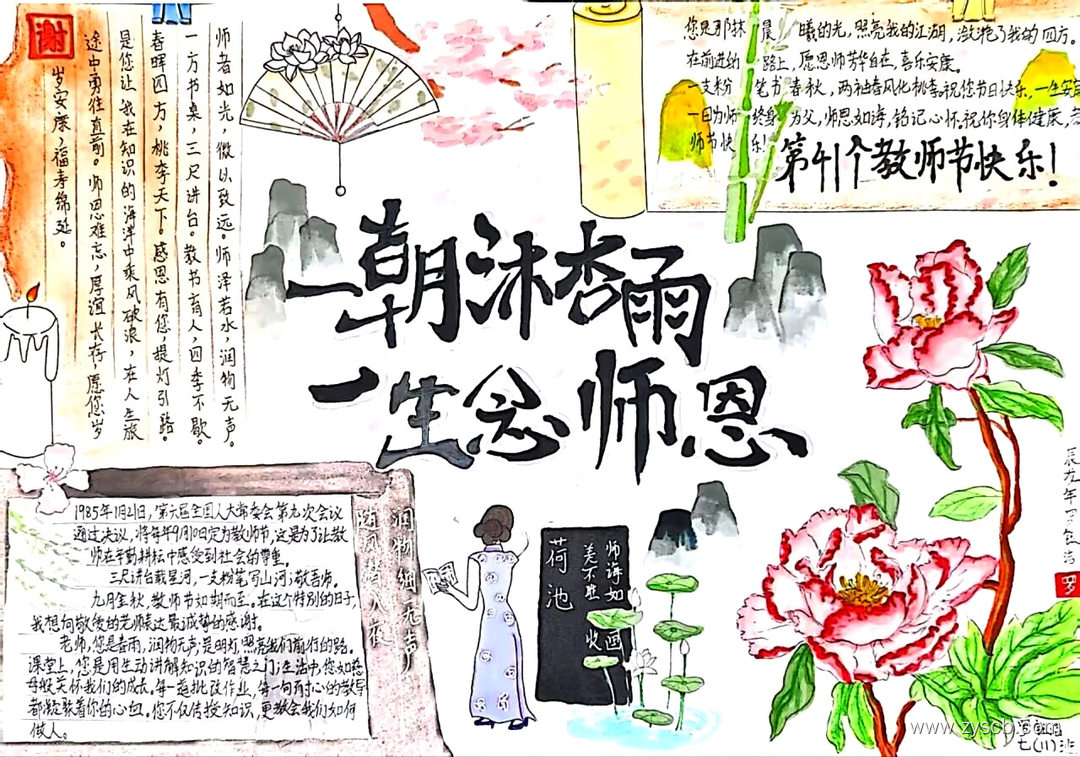 谢
师者如光，微以致远。师泽若水，润物无声。
一方书桌，三尺讲台。教书育人，四季不歇。
春晖四方，桃李天下。感恩有您，提灯引路。
是您让我在知识的海洋中乘风破浪，在人生旅
途中勇往直前。师恩难忘，厚谊长存，愿您岁
岁安康，福寿绵延。
您是那抹晨曦的光，照亮我的江湖，潋滟了我的四方。
在前进的路上，愿恩师芳华自在，喜乐安康。
一支粉笔书春秋，两袖春风化桃李。祝您节日快乐，一生安
一日为师终身为父，师恩如海，铭记心怀。祝你身体健康，
师节快乐！
第41个教师节快乐！
一朝沐杏雨
一生念师恩
1985年1月21日，第六届全国人大常委会第九次会议
通过决议，将每年9月10日定为教师节，这是为了让教
师在辛勤耕耘中感受到社会的尊重。
三尺讲台载星河，一支粉笔写山河；敬吾师。
九月金秋，教师节如期而至。在这个特别的日子，
我想向敬爱的老师表达最诚挚的感谢。
老师，您是春雨，润物无声；是明灯，照亮我们前行的路。
课堂上，您是用生动讲解知识的智慧之门；生活中，您如慈
母般关怀我们的成长。每一遍批改作业，每一句耐心的教导
都凝聚着你的心血。您不仅传授知识，更教会我们如何
做人。
随风潜入夜
润物细无声
师诲如画
美不胜收
荷池
辰龙年
罗
七(11)班
www.zyscb.com